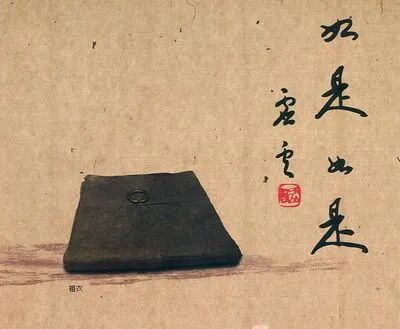 如是如是
虛雲
祖衣